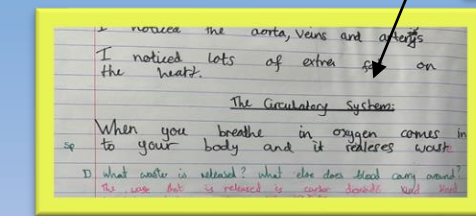 I noticed the aorta, veins and arterys
I noticed lots of extra fat on
the heart.
The Circulatory System:
When you breathe in oxygen comes in
Sp to your body and it realeses wast
D what waste is released? what else does blood carry around?
The wase that is released is carbon